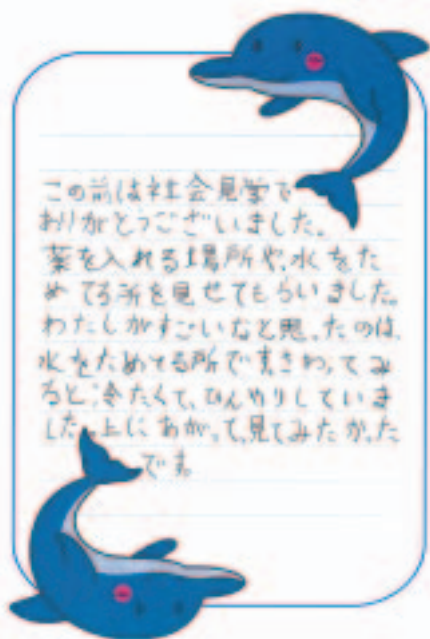 この前は社会見学で
ありがとうございました。
薬を入れる場所や、水をた
めてる所を見せてもらいました。
わたしがすごいなと思ったのは、
水をためてる所です。さわってみ
ると、冷たくて、ひんやりしていま
した。上にあがって、見てみたかった
です。